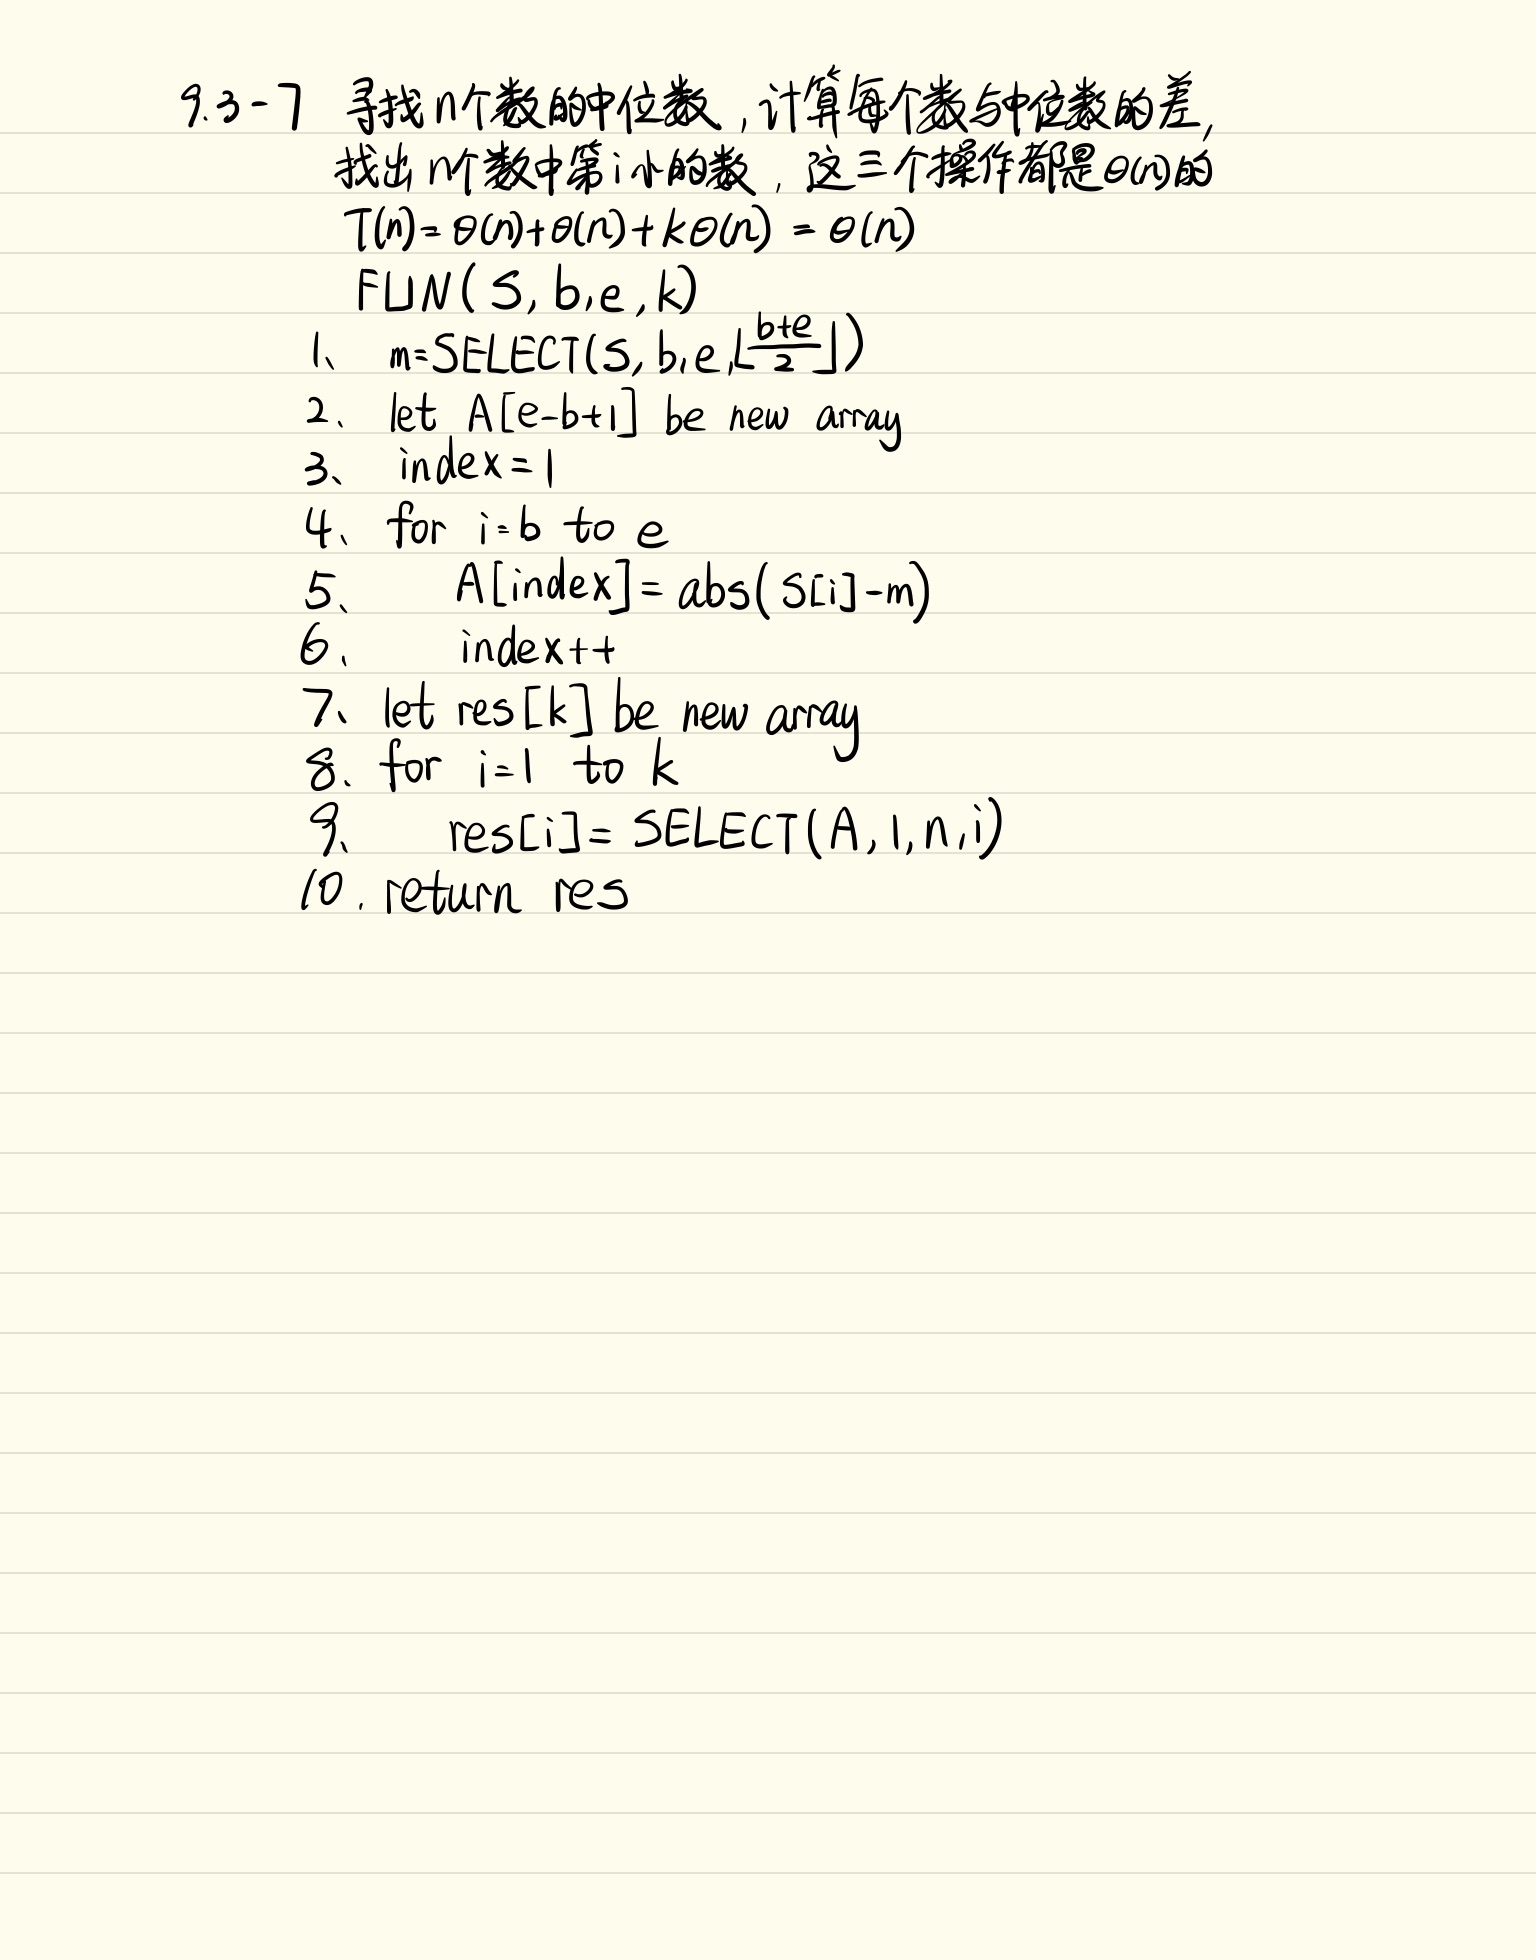 9.3-7 寻找n个数的中位数,计算每个数与中位数的差,
找出n个数中第i小的数,这三个操作都是θ(n)的
T(n)=θ(n)+θ(n)+kθ(n)=θ(n)
FUN(S,b,e,k)
1、 m=SELECT(S,b,e,⌊(b+e)/2⌋)
2、 let A[e-b+1] be new array
3、 index=1
4、 for i=b to e
5、 A[index]=abs(S[i]-m)
6、 index++
7、 let res[k] be new array
8、 for i=1 to k
9、 res[i]=SELECT(A,1,n,i)
10. return res